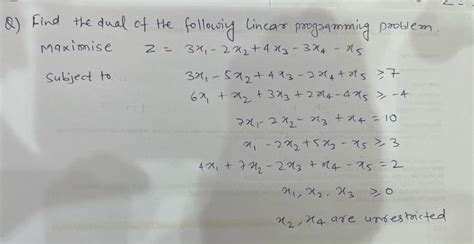 Q) Find the dual of the following linear programming problem.
Maximise Z = 3x₁ - 2x₂ + 4x₃ - 3x₄ - x₅
Subject to 3x₁ - 5x₂ + 4x₃ - 2x₄ + x₅ ≥ 7
6x₁ + x₂ + 3x₃ + 2x₄ - 4x₅ ≥ -4
7x₁ - 2x₂ - x₃ + x₄ = 10
x₁ - 2x₂ + 5x₃ - x₅ ≥ 3
4x₁ + 7x₂ - 2x₃ + x₄ - x₅ = 2
x₁, x₂, x₃ ≥ 0
x₂, x₄ are unrestricted